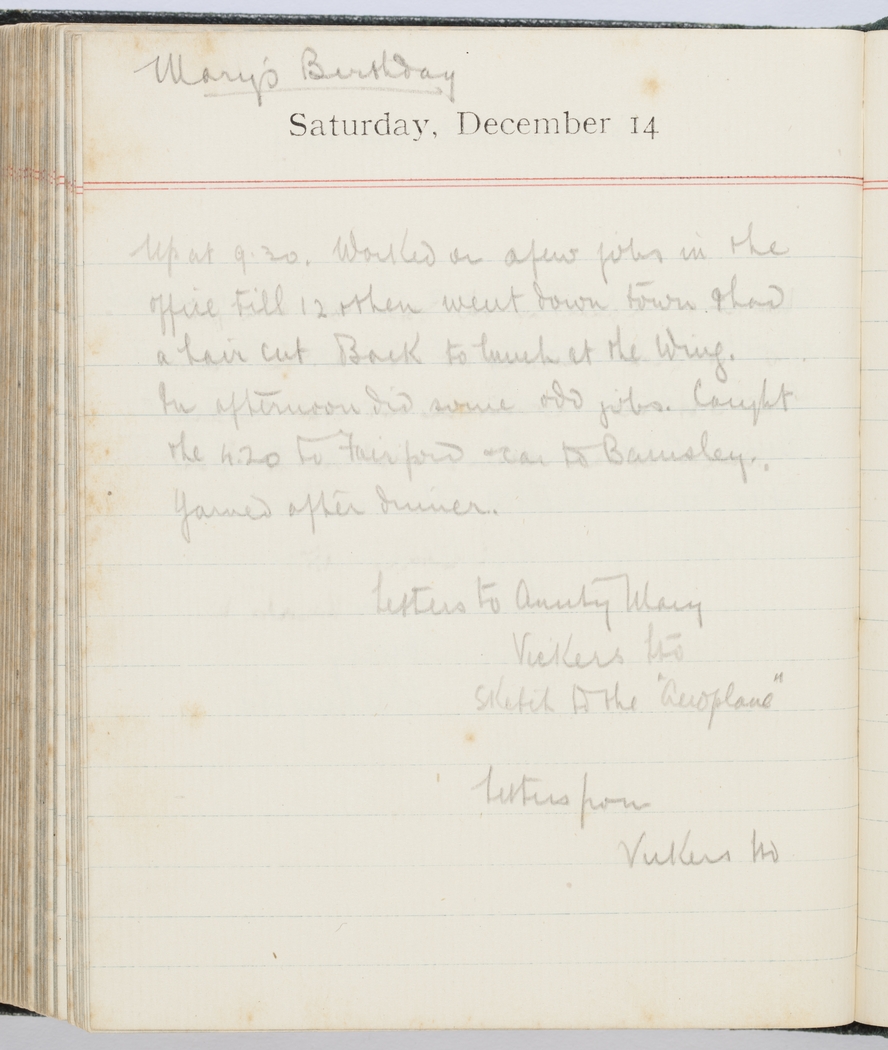 Mary's Birthday
Saturday, December 14
Up at 9.30. Worked on a few jobs in the
office till 12 & then went down town & had
a hair cut. Back to lunch at the Wing.
In afternoon did some odd jobs. Caught
the 4.20 to Fairford & car to Barnsley.
Yarned after dinner.
Letters to Aunty Mary
Vickers Ltd
Sketch to the "Aeroplane"
Letters from
Vickers Ltd